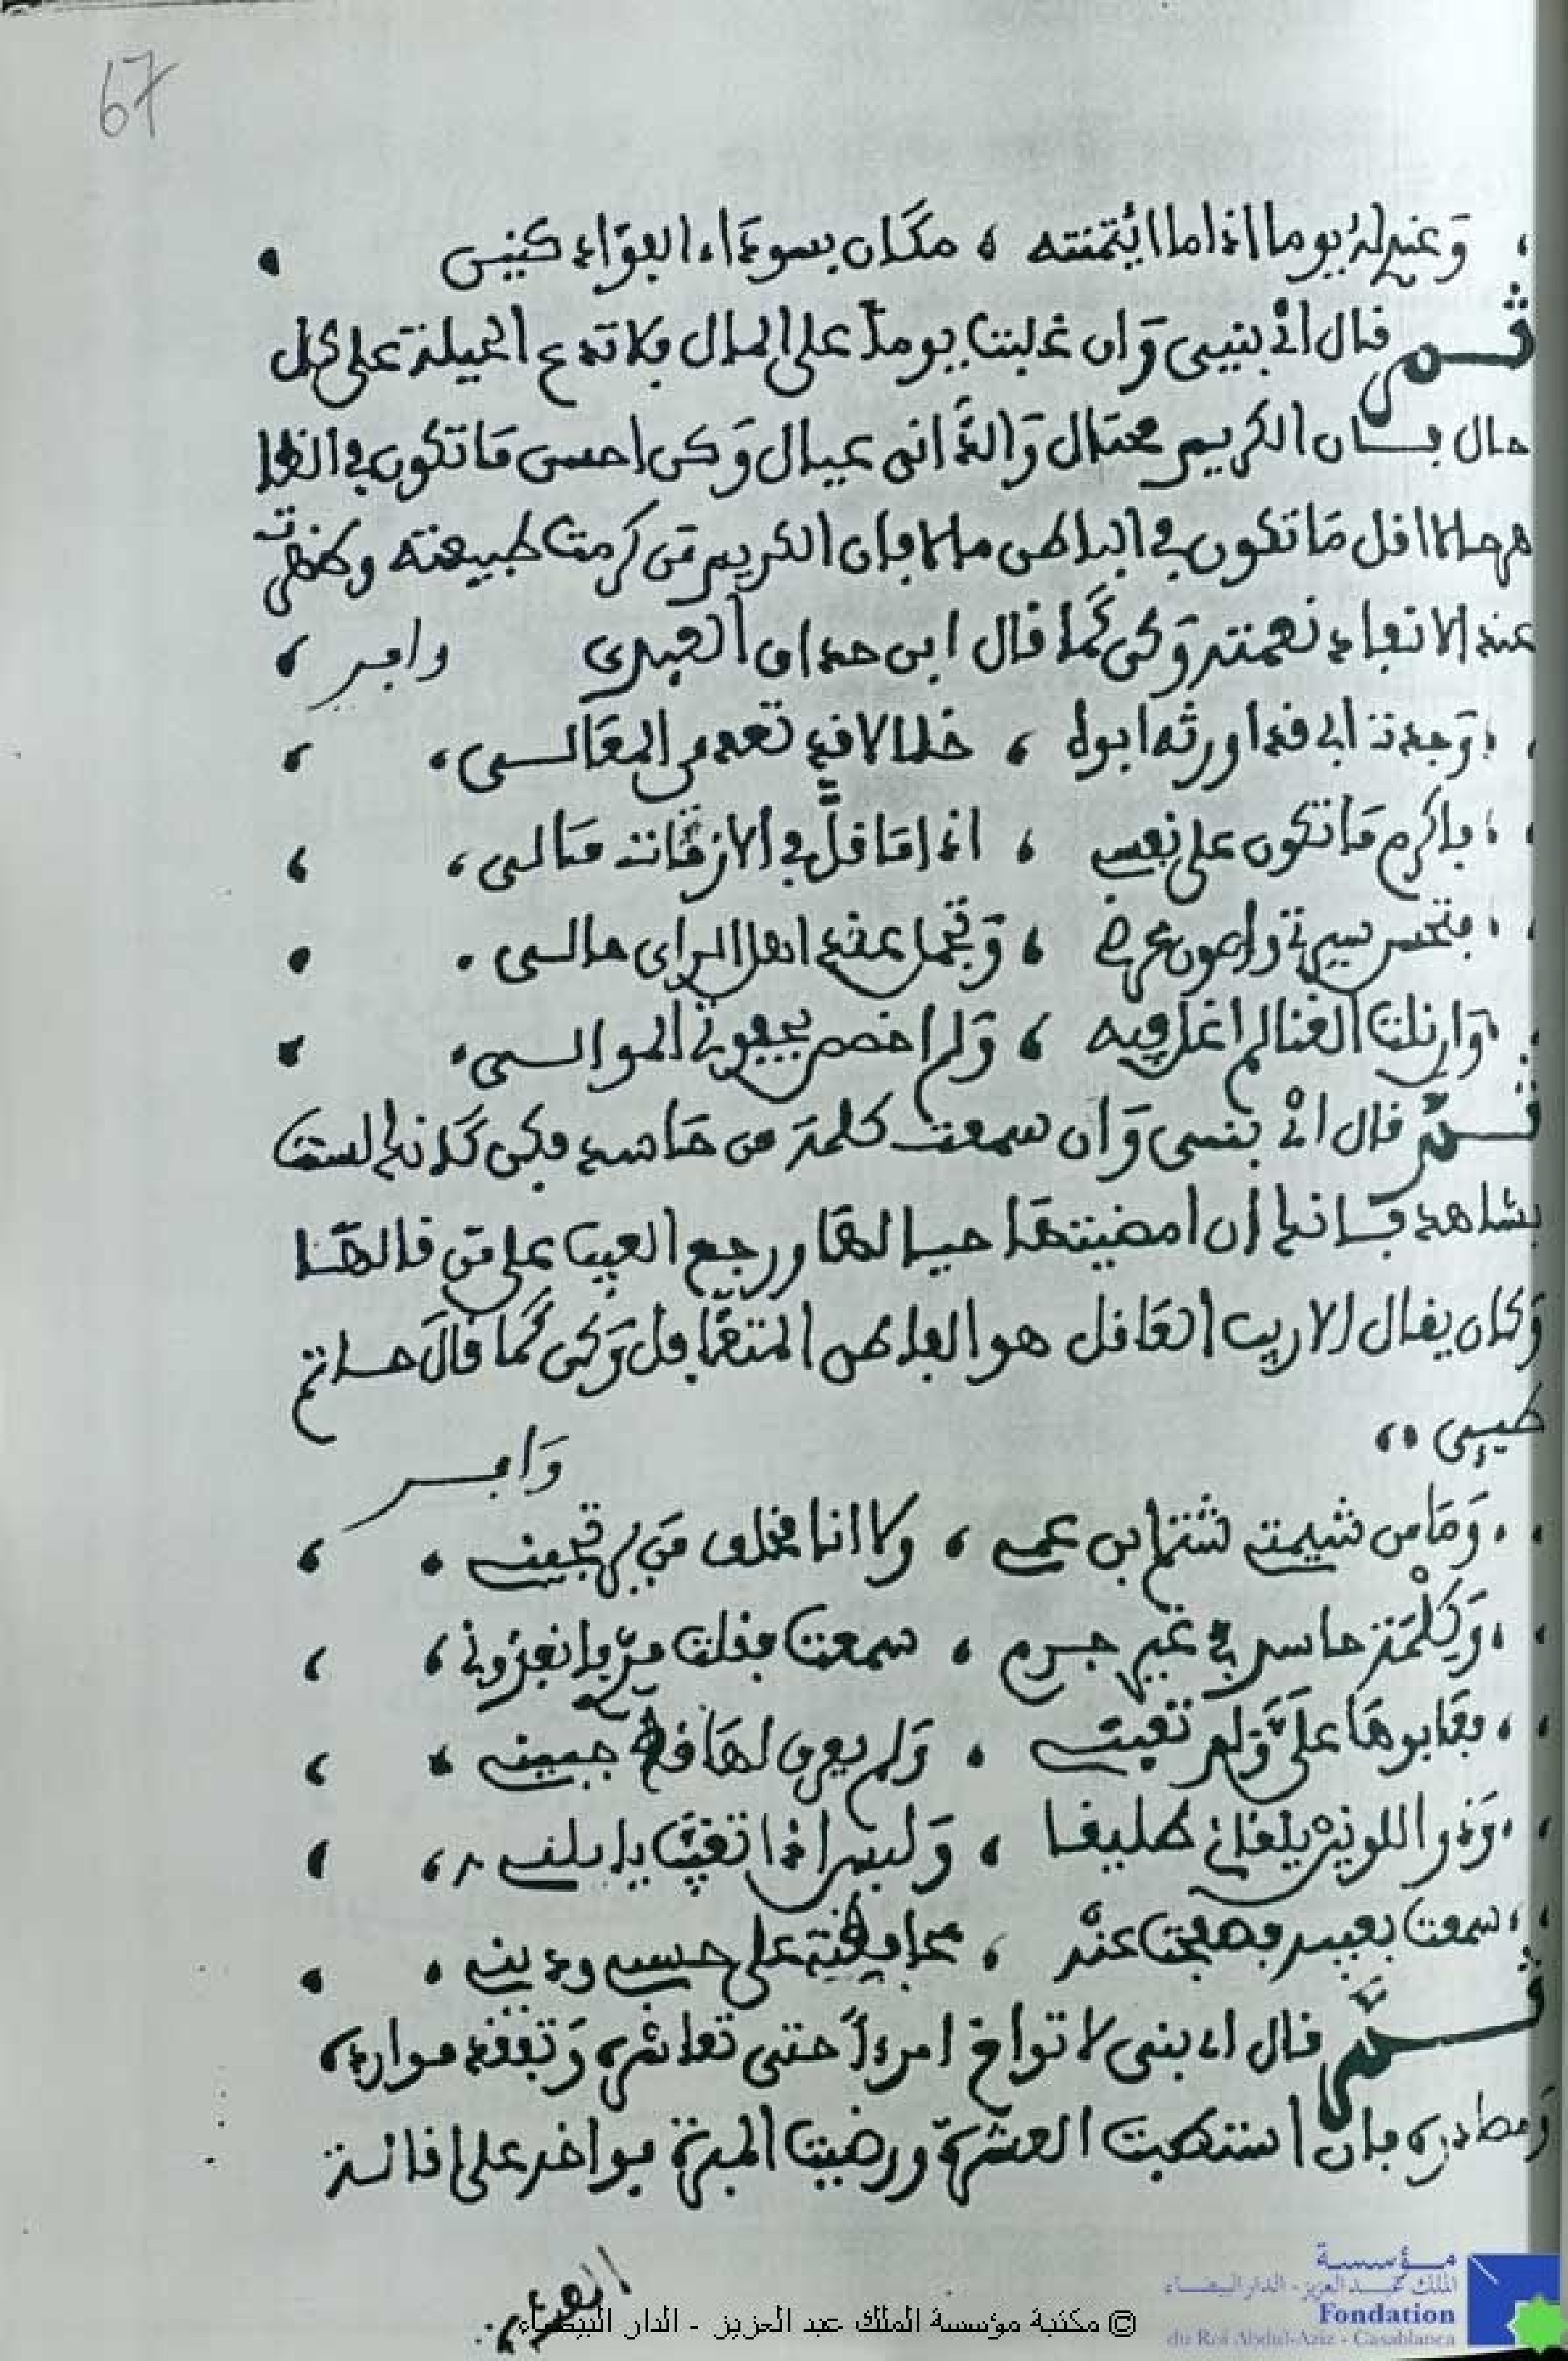 67
، وَعندِي لهُ يوما اذا ما ائتمنته ، مكَان بسوداء الفؤاد كنين
ثم قال ائ بنيي وَان غلبت يوماً على المال فلا تدع الحيلة على كل
حال فان الكريم محتال وَالدَّاني عيال وَكن احسن مَا تكون في الظا
هر حالا اقل مَا تكون في الباطن مالا فان الكريم من كرمت طبيعته وظهرت
عند الانفاد نعمته وَكن كَما قال ابن حذاق العبدي وافر ،
، وَجدت ابي قد اورثه ابوه ، خلالا قد تعد من المعَالي ،
، فاكرم مَا تكون على نفسي ، اذا مَا قلَّ في الازمَات مَالي ،
، فتحسن سيرتي واصون عرضي ، وَتجمل عند اهل الراي حالي .
، وَان نلت الغنا لم اغل فيه ، وَلم اخصص بجفوتي الموالي .
ثمّ قال ائ بنيي وَان سمعت كلمة من حَاسد فكن كَانك لست
بشاهد فانك ان امضيتهَا حيالهَا ورجع العيب على من قالهَا
وَكان يقال الاريب العَاقل هو الفاطن المتغَافل وَكن كَما قالَ حاتم
طيي ،،
وَافر
، وَمَا من شيمتي شتم ابن عمي ، ولا انا مخلف مَن يرتجيني .
، وَكِلْمَة حاسد في غير جرم ، سمعت فقلت مرّ فانفذوني ،
، فعَابوهَا عليَّ وَلم تعبني ، وَلم يعرق لهَا قط جبيني ،
، وَذو اللونين يلقاني طليقا ، وَليس اذا تغيَّب ياتلني ،
، سمعت بعيبه فصفحت عنْه ، محافظة على حسبي وديني .
ثمَّ قال ائ بني لا تواخ امرءاً حتى تعاشره وَتفقد موارده
وَمصادره فان استطبت العشرة ورضيت الخبرة فواخه على اقالة
العثرة
© مكتبة مؤسسة الملك عبد العزيز - الدار البيضاء
مؤسسة
الملك عبد العزيز - الدار البيضاء
Fondation
du Roi Abdul-Aziz - Casablanca